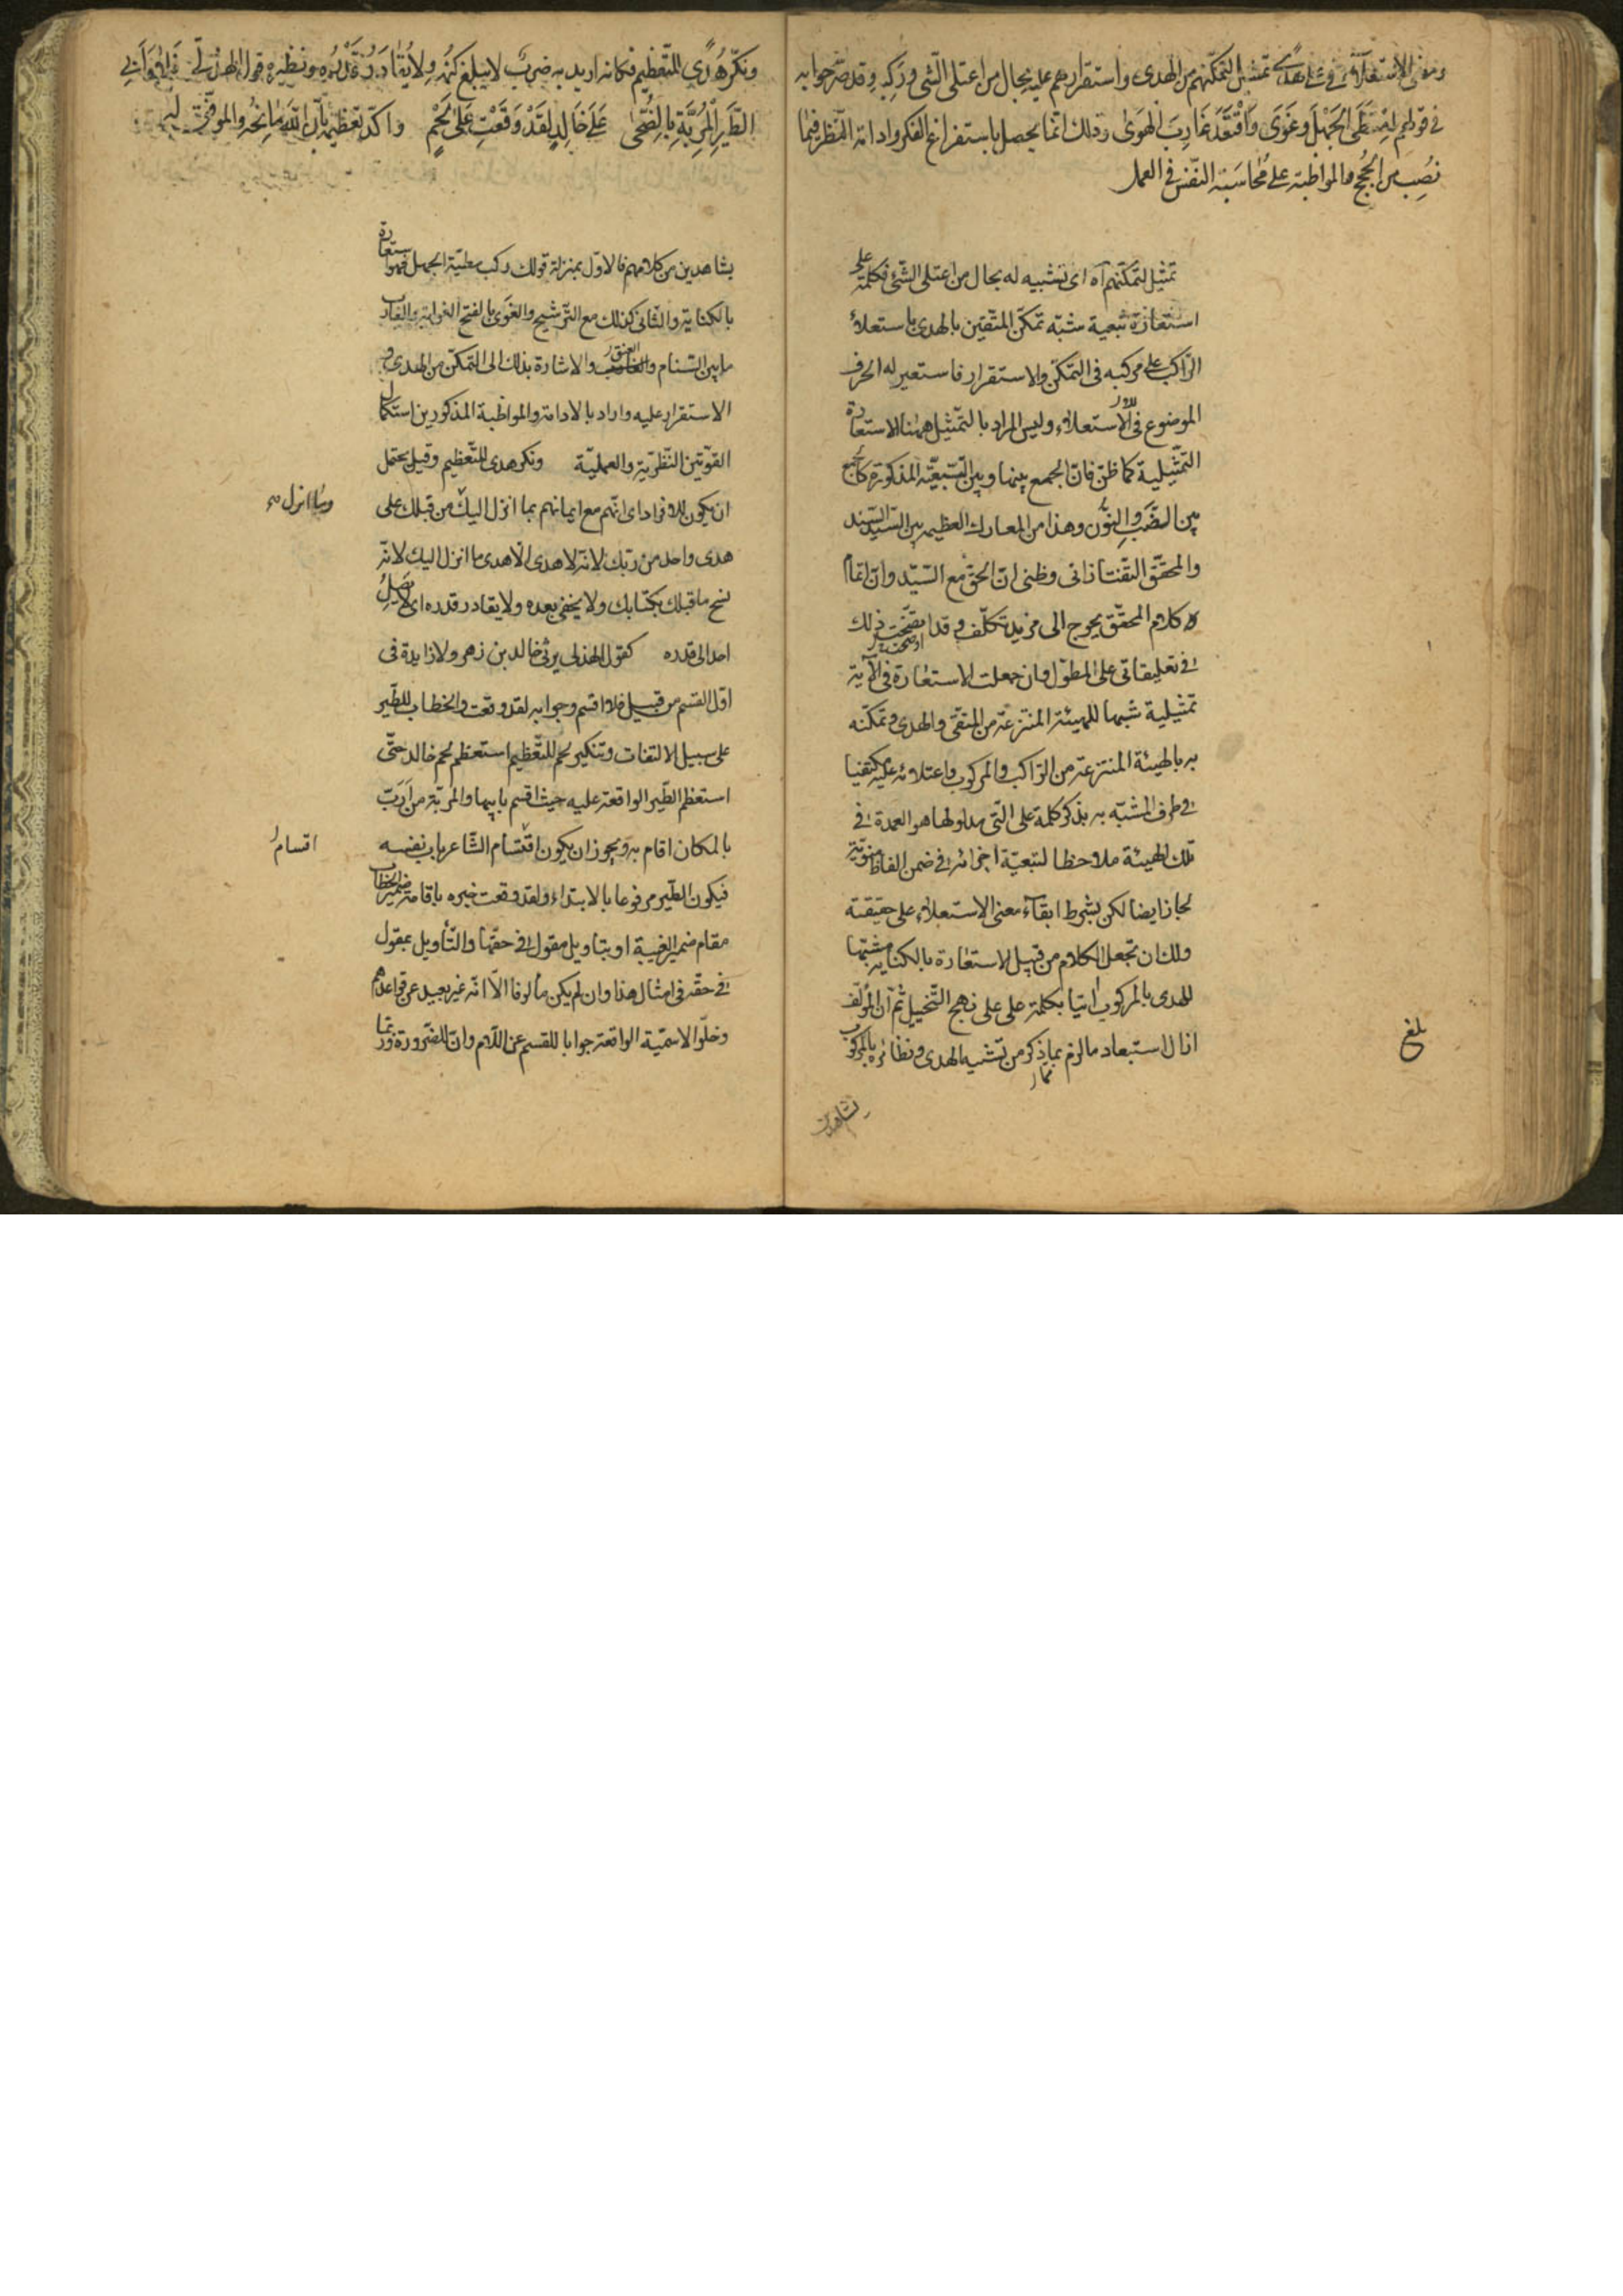 ومعنى الاستعلاء في على هدى تمثيل تمكنهم من الهدى واستقرارهم عليه بحال من اعتلى الشئ وركبه وقد صرحوا به
في قولهم امتطى الجهل وغوى واقتعد غارب الهوى وذلك انما يحصل باستفراغ الفكر وادامة النظر فيما
نصب من الحجج والمواظبة على محاسبة النفس في العمل
تمثيل لتمكنهم آه اى تشبيه له بحال من اعتلى الشئ فكلمة على
استعارة تبعية شبه تمكن المتقين بالهدى باستعلاء
الراكب على مركبه فى التمكن والاستقرار فاستعير له الحرف
الموضوع فى للاستعلاء وليس المراد بالتمثيل ههنا الاستعارة
التمثيلية كما ظن فان الجمع بينها وبين التبعية المذكورة كالجمع
بين الضب والنون وهذا من المعارك العظيمه بين السيد السند
والمحقق التفتازانى وظنى ان الحق مع السيد وان اتمام
كلام المحقق يحوج الى مزيد تكلف وقد اوضحت ذلك
فى تعليقاتى على المطول وان جعلت الاستعارة فى الآية
تمثيلية شبها للهيئة المنتزعة من المتقى والهدى وتمكنه
به بالهيئة المنتزعة من الراكب والمركوب واعتلائه عليه مكتفيا
فى طرف المشبه به بذكر كلمة على التى مدلولها هو العمدة فى
تلك الهيئة ملاحظا لتبعية اجزائه فى ضمن الفاظ منوية
لجاز ايضا لكن بشرط ابقاء معنى الاستعلاء على حقيقته
ولك ان تجعل الكلام من قبيل الاستعارة بالكناية مشبها
للهدى بالمركوب اتيا بكلمة على على نهج التخييل ثم ان المؤلف
ازال استبعاد ما لزم مما ذكر من تشبيه الهدى ونظائره بالمركوب
بلغ
بشاهدين
ونكر هدى للتعظيم فكانه اريد به ضرب لا يبلغ كنهه ولا يقادر قدره ونظيره قول الهذلى فلا وابى
الطير المربة بالضحى على خالد لقد وقعت على لحم واكد تعظيمه بان الله مانحه والموفق له
بشاهدين من كلامهم فالاول بمنزلة قولك ركب مطية الجهل فهو استعارة
بالكناية والثانى كذلك مع الترشيح والغوى بالفتح الغواية والغارب
ما بين السنام والعنق والاشارة بذلك الى التمكن من الهدى و
الاستقرار عليه واراد بالادامة والمواظبة المذكورين استكمال
القوتين النظرية والعملية ونكر هدى للتعظيم وقيل يحتمل
ان يكون للافراد اى انهم مع ايمانهم بما انزل اليك من قبلك على
وما انزل
هدى واحد من ربك لانه لا هدى الا هدى ما انزل اليك لانه
نسخ ما قبلك بكتابك ولا يخفى بعده ولا يقادر قدره اى لا يصل
احد الى قدره كقول الهذلى يرثى خالد بن زهير ولا زايدة فى
اول القسم من قبيل فلا اقسم وجوابه لقد وقعت والخطاب للطير
على سبيل الالتفات وتنكير لحم للتعظيم استعظم لحم خالد حتى
استعظم الطير الواقعة عليه حيث اقسم بابيها والمربة من ارب
بالمكان اقام به ويجوز ان يكون اقتسام الشاعر باب نفسه
اقسام
فيكون الطير مرفوعا بالابتداء ولقد وقعت خبره باقامة ضمير الخطاب
مقام ضمير الغيبة او بتاويل مقول فى حقها والتأويل بمقول
فى حقه فى امثال هذا وان لم يكن مألوفا الا انه غير بعيد عن قواعدهم
وخلو الاسمية الواقعة جوابا للقسم عن اللام وان للضرورة وربما